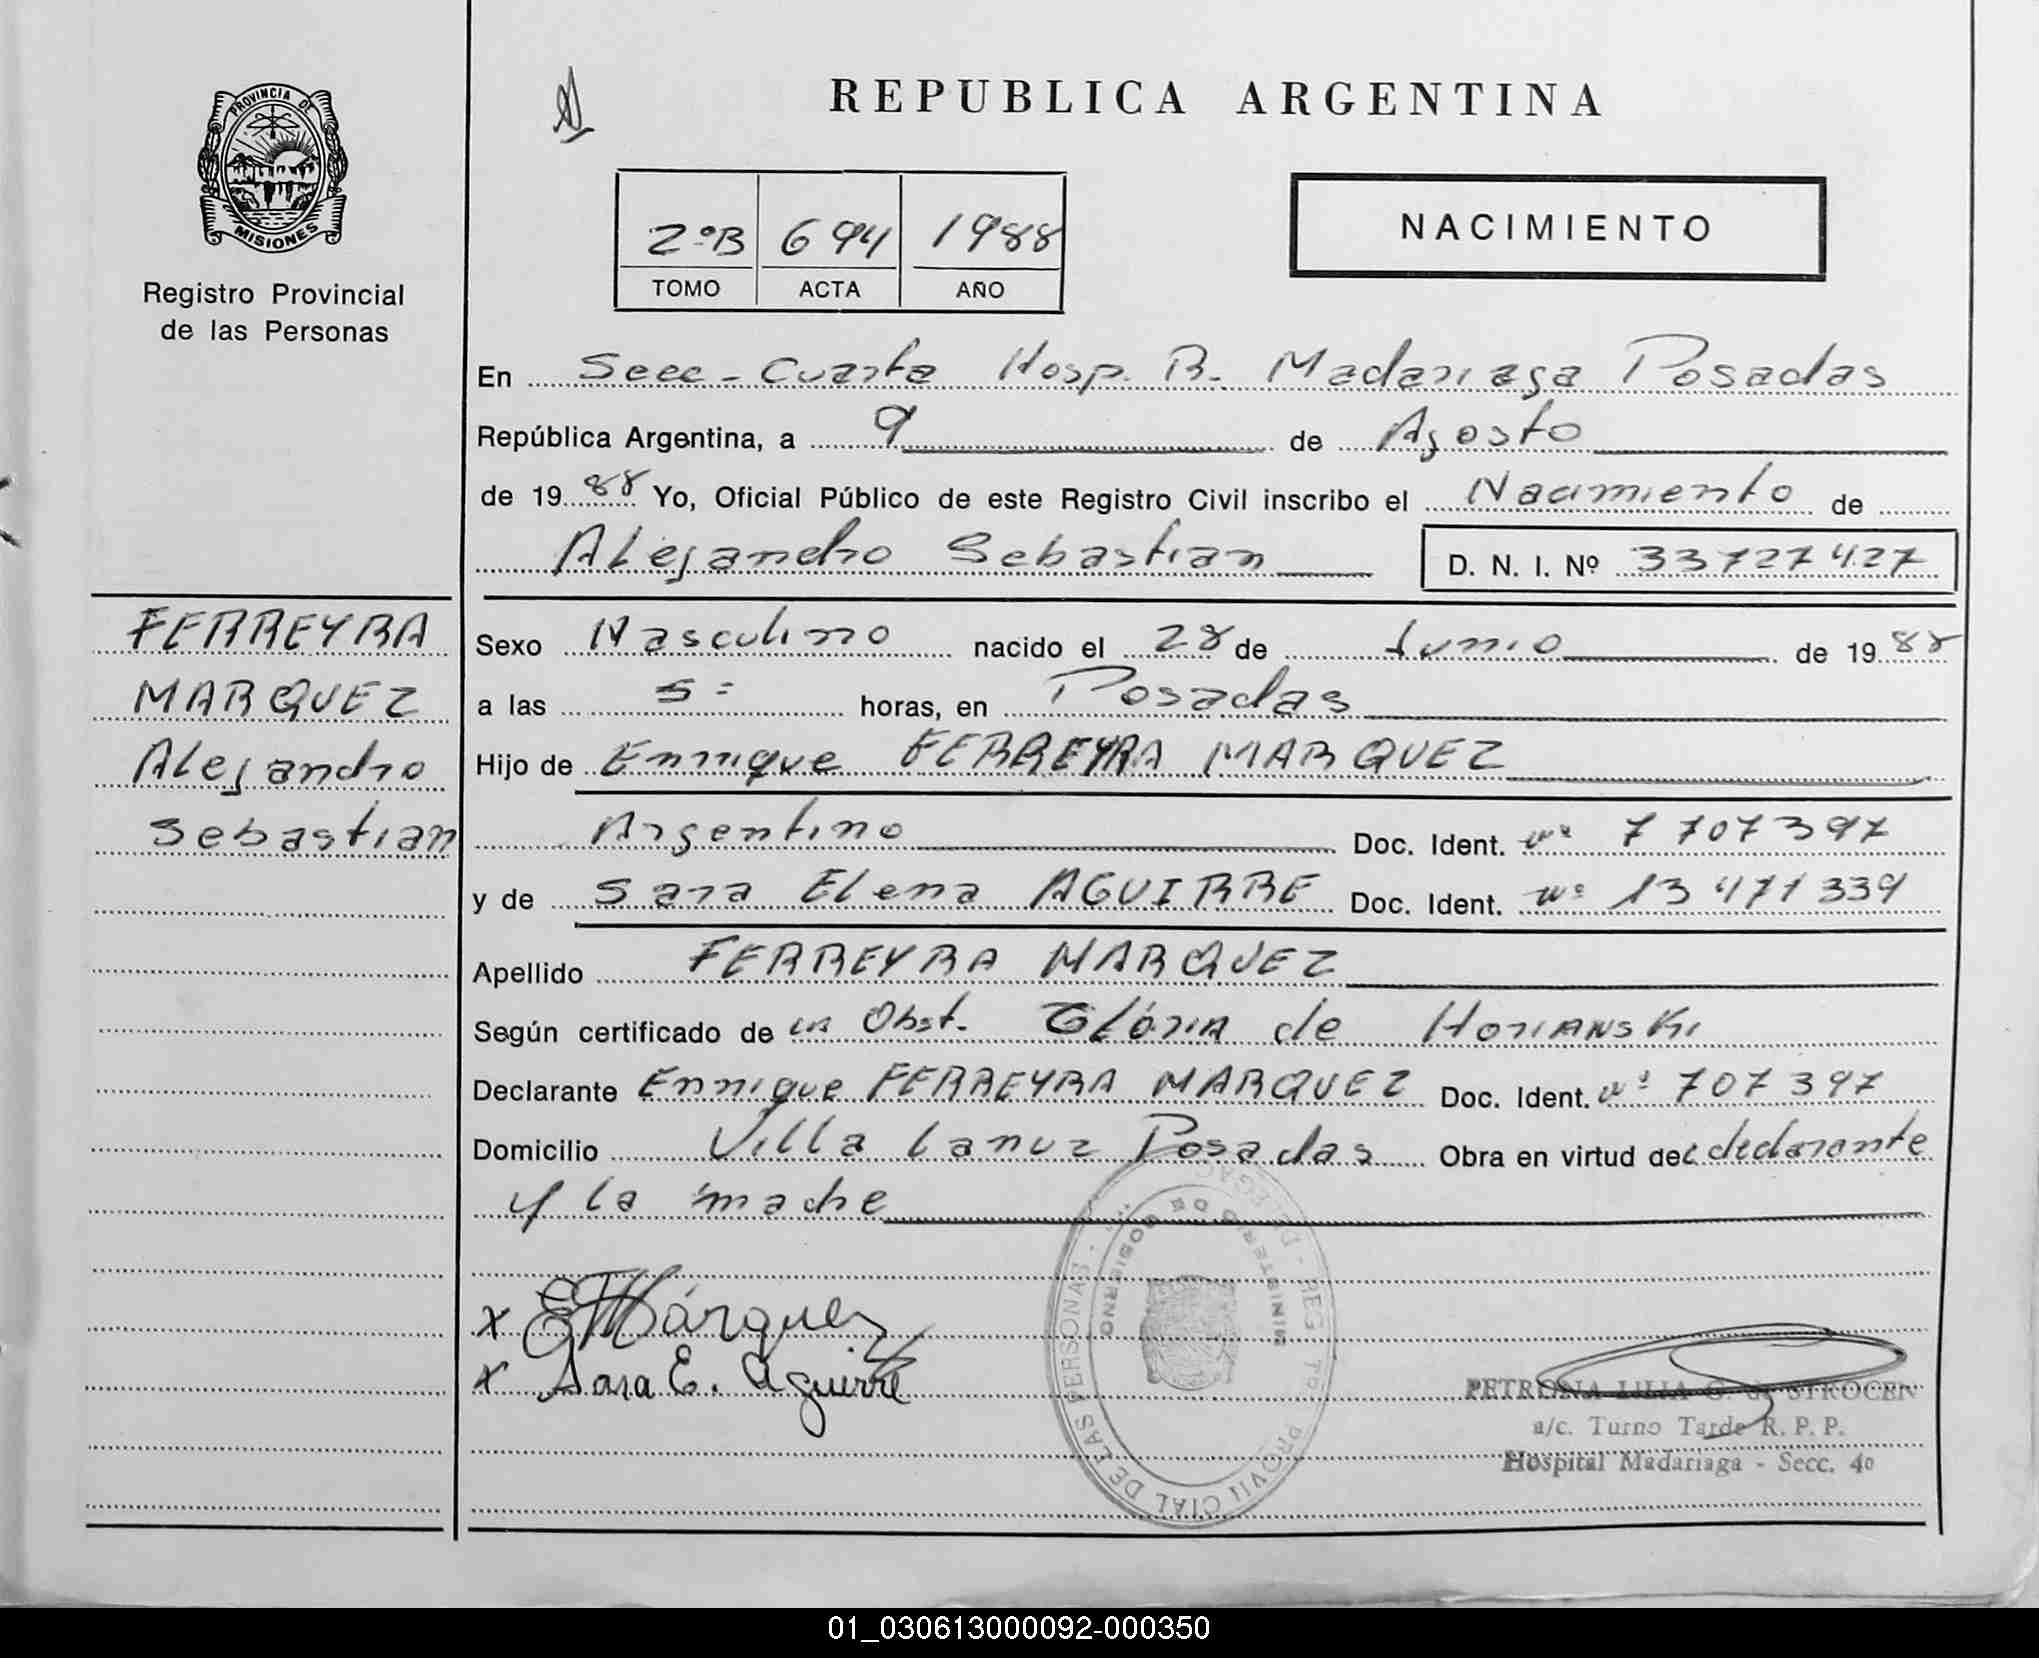 PROVINCIA DE
MISIONES
Registro Provincial
de las Personas
REPUBLICA ARGENTINA
NACIMIENTO
2ºB 694 1988
TOMO ACTA AÑO
En Secc - Cuarta Hosp. R. Madariaga Posadas
República Argentina, a 9 de Agosto
de 1988 Yo, Oficial Público de este Registro Civil inscribo el Nacimiento de
Alejandro Sebastian D. N. I. Nº 33727427
FERREYRA
MARQUEZ
Alejandro
Sebastian
Sexo Masculino nacido el 28 de Junio de 1988
a las 5= horas, en Posadas
Hijo de Enrrique FERREYRA MARQUEZ
Argentino Doc. Ident. nº 7707397
y de Sara Elena AGUIRRE Doc. Ident. nº 13471339
Apellido FERREYRA MARQUEZ
Según certificado de la Obst. Gloria de Horianski
Declarante Enrrique FERREYRA MARQUEZ Doc. Ident. nº 707397
Domicilio Villa Lanuz Posadas Obra en virtud del declarante
y la madre
x E Márquez
x Sara E. Aguirre
MINISTERIO DE GOBIERNO
PROVINCIAL DE LAS PERSONAS
PETRONA LILIA G. STROCEN
a/c. Turno Tarde R. P. P.
Hospital Madariaga - Secc. 4o
01_030613000092-000350